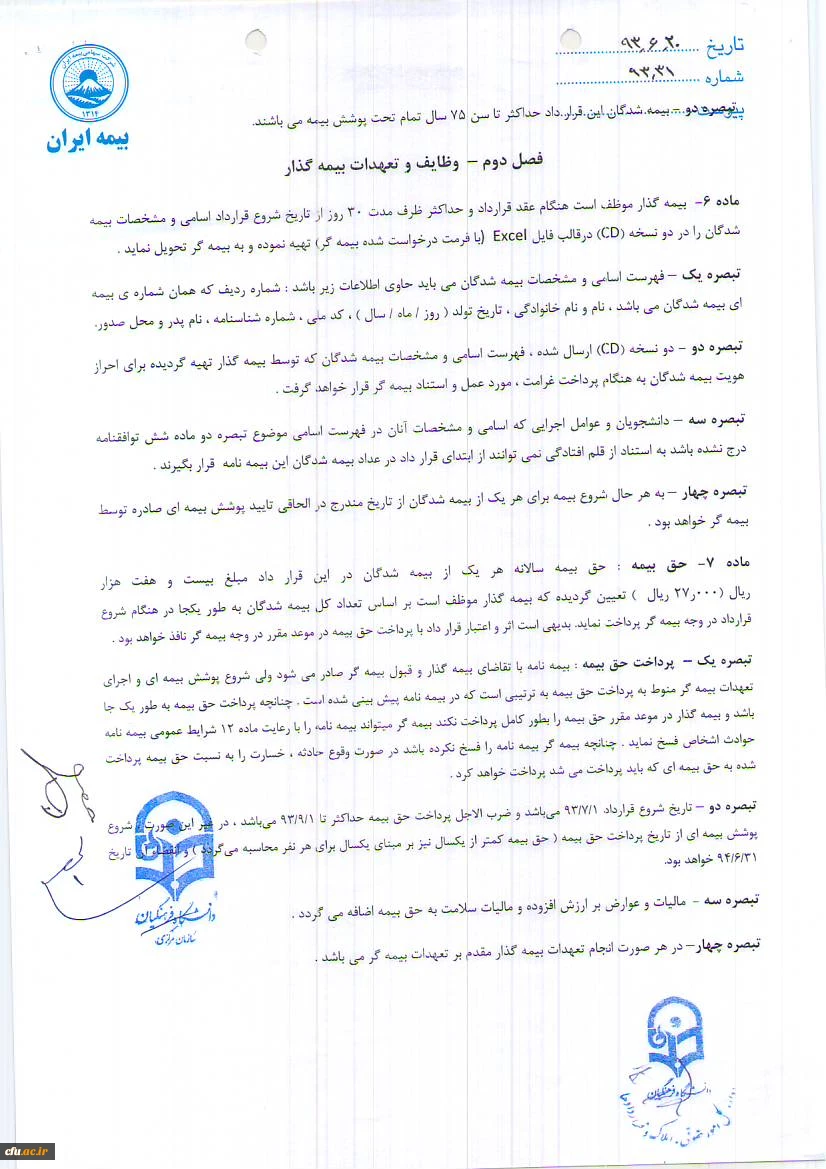 تاریخ ۹۳٫۶٫۲۰
شماره ۹۳٫۳۱
پیوست
شرکت سهامی بیمه ایران
۱۳۱۴
بیمه ایران
تبصره دو – بیمه شدگان این قرار داد حداکثر تا سن ۷۵ سال تمام تحت پوشش بیمه می باشند.
فصل دوم – وظایف و تعهدات بیمه گذار
ماده ۶- بیمه گذار موظف است هنگام عقد قرارداد و حداکثر ظرف مدت ۳۰ روز از تاریخ شروع قرارداد اسامی و مشخصات بیمه
شدگان را در دو نسخه (CD) درقالب فایل Excel (با فرمت درخواست شده بیمه گر) تهیه نموده و به بیمه گر تحویل نماید .
تبصره یک – فهرست اسامی و مشخصات بیمه شدگان می باید حاوی اطلاعات زیر باشد : شماره ردیف که همان شماره ی بیمه
ای بیمه شدگان می باشد ، نام و نام خانوادگی ، تاریخ تولد ( روز / ماه / سال ) ، کد ملی ، شماره شناسنامه ، نام پدر و محل صدور.
تبصره دو – دو نسخه (CD) ارسال شده ، فهرست اسامی و مشخصات بیمه شدگان که توسط بیمه گذار تهیه گردیده برای احراز
هویت بیمه شدگان به هنگام پرداخت غرامت ، مورد عمل و استناد بیمه گر قرار خواهد گرفت .
تبصره سه – دانشجویان و عوامل اجرایی که اسامی و مشخصات آنان در فهرست اسامی موضوع تبصره دو ماده شش توافقنامه
درج نشده باشد به استناد از قلم افتادگی نمی توانند از ابتدای قرار داد در عداد بیمه شدگان این بیمه نامه قرار بگیرند .
تبصره چهار – به هر حال شروع بیمه برای هر یک از بیمه شدگان از تاریخ مندرج در الحاقی تایید پوشش بیمه ای صادره توسط
بیمه گر خواهد بود .
ماده ۷- حق بیمه : حق بیمه سالانه هر یک از بیمه شدگان در این قرار داد مبلغ بیست و هفت هزار
ریال (۲۷٫۰۰۰ ریال ) تعیین گردیده که بیمه گذار موظف است بر اساس تعداد کل بیمه شدگان به طور یکجا در هنگام شروع
قرارداد در وجه بیمه گر پرداخت نماید. بدیهی است اثر و اعتبار قرار داد با پرداخت حق بیمه در موعد مقرر در وجه بیمه گر نافذ خواهد بود .
تبصره یک – پرداخت حق بیمه : بیمه نامه با تقاضای بیمه گذار و قبول بیمه گر صادر می شود ولی شروع پوشش بیمه ای و اجرای
تعهدات بیمه گر منوط به پرداخت حق بیمه به ترتیبی است که در بیمه نامه پیش بینی شده است . چنانچه پرداخت حق بیمه به طور یک جا
باشد و بیمه گذار در موعد مقرر حق بیمه را بطور کامل پرداخت نکند بیمه گر میتواند بیمه نامه را با رعایت ماده ۱۲ شرایط عمومی بیمه نامه
حوادث اشخاص فسخ نماید . چنانچه بیمه گر بیمه نامه را فسخ نکرده باشد در صورت وقوع حادثه ، خسارت را به نسبت حق بیمه پرداخت
شده به حق بیمه ای که باید پرداخت می شد پرداخت خواهد کرد .
تبصره دو – تاریخ شروع قرارداد ۹۳/۷/۱ می‌باشد و ضرب الاجل پرداخت حق بیمه حداکثر تا ۹۳/۹/۱ می‌باشد ، در غیر این صورت ، شروع
پوشش بیمه ای از تاریخ پرداخت حق بیمه ( حق بیمه کمتر از یکسال نیز بر مبنای یکسال برای هر نفر محاسبه می‌گردد ) و انقضاء آن تاریخ
۹۴/۶/۳۱ خواهد بود.
تبصره سه - مالیات و عوارض بر ارزش افزوده و مالیات سلامت به حق بیمه اضافه می گردد .
تبصره چهار– در هر صورت انجام تعهدات بیمه گذار مقدم بر تعهدات بیمه گر می باشد .
دانشگاه فرهنگیان
سازمان مرکزی
دانشگاه فرهنگیان
cfu.ac.ir